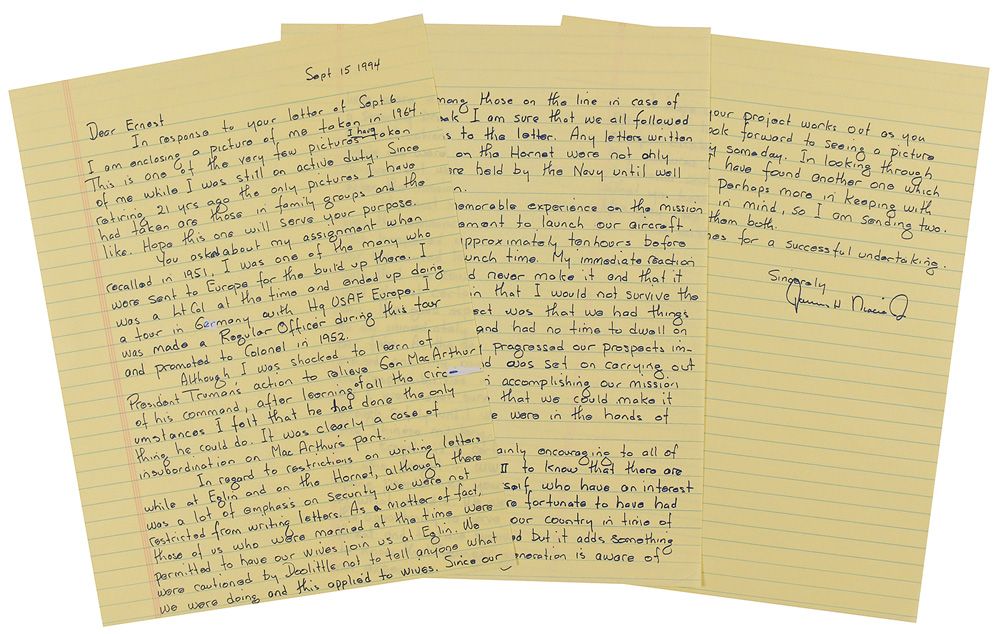 Sept 15 1994
Dear Ernest
In response to your letter of Sept 6
I am enclosing a picture of me taken in 1964.
This is one of the very few pictures I have taken
of me while I was still on active duty. Since
retiring 21 yrs ago the only pictures I have
had taken are those in family groups and the
like. Hope this one will serve your purpose.
You asked about my assignment when
recalled in 1951. I was one of the many who
were sent to Europe for the build up there. I
was a Lt Col at the time and ended up doing
a tour in Germany with Hq USAF Europe. I
was made a Regular Officer during this tour
and promoted to Colonel in 1952.
Although I was shocked to learn of
President Truman's action to relieve Gen MacArthur
of his command, after learning of all the circ-
umstances I felt that he had done the only
thing he could do. It was clearly a case of
insubordination on MacArthur's part.
In regard to restrictions on writing letters
while at Eglin and on the Hornet, although there
was a lot of emphasis on security we were not
restricted from writing letters. As a matter of fact,
those of us who were married at the time were
permitted to have our wives join us at Eglin. We
were cautioned by Doolittle not to tell anyone what
we were doing and this applied to wives. Since our
mong those on the line in case of
ak I am sure that we all followed
s to the letter. Any letters written
on the Hornet were not only
ere held by the Navy until well
n.
emorable experience on the mission
ement to launch our aircraft.
pproximately ten hours before
unch time. My immediate reaction
d never make it and that it
in that I would not survive the
ect was that we had things
and had no time to dwell on
progressed our prospects im-
d was set on carrying out
accomplishing our mission
that we could make it
e were in the hands of
ainly encouraging to all of
II to know that there are
self who have an interest
re fortunate to have had
our country in time of
d but it adds something
neration is aware of
your project works out as you
ook forward to seeing a picture
y someday. In looking through
I have found another one which
perhaps more in keeping with
in mind, so I am sending two.
them both.
hes for a successful undertaking.
Sincerely